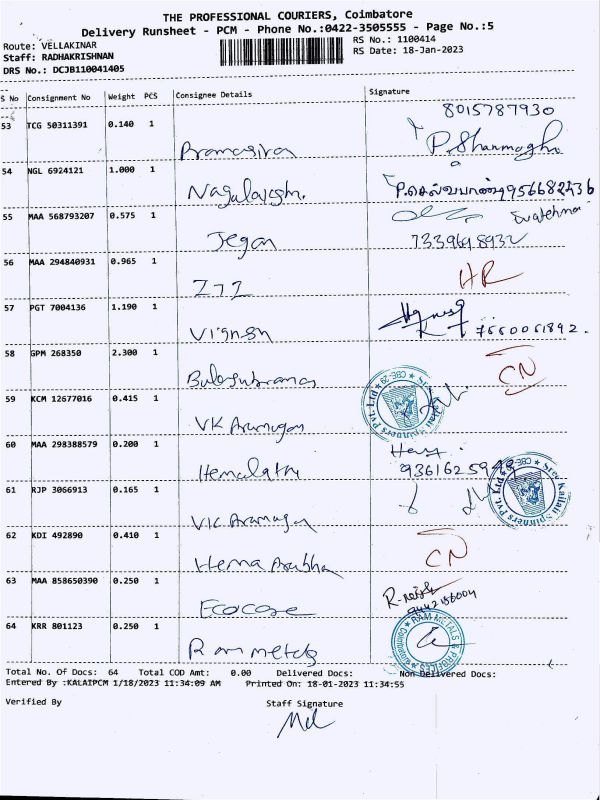 THE PROFESSIONAL COURIERS, Coimbatore
Delivery Runsheet - PCM - Phone No.:0422-3505555 - Page No.:5
Route: VELLAKINAR RS No.: 1100414
Staff: RADHAKRISHNAN RS Date: 18-Jan-2023
DRS No.: DCJB110041405
S No Consignment No Weight PCS Consignee Details Signature
8015787930
53 TCG 50311391 0.140 1
Paramasiva P. Shanmugha
54 NGL 6924121 1.000 1
55 MAA 568793207 0.575 1
Jegan
56 MAA 294840931 0.965 1
HR
57 PGT 7004136 1.190 1
Vignesh 7660061892.
58 GPM 268350 2.300 1
CN
59 KCM 12677016 0.415 1
VK Arumugam
60 MAA 298388579 0.200 1
Hemalatha
61 RJP 3066913 0.165 1
VK Arumugam
62 KDI 492890 0.410 1
CN
Hema Prabha
63 MAA 858650390 0.250 1
Ecocare
64 KRR 801123 0.250 1
Ram metals
RAM METALS & PROFILES
Total No. Of Docs: 64 Total COD Amt: 0.00 Delivered Docs: Non Delivered Docs:
Entered By :KALAIPCM 1/18/2023 11:34:09 AM Printed On: 18-01-2023 11:34:55
Verified By Staff Signature